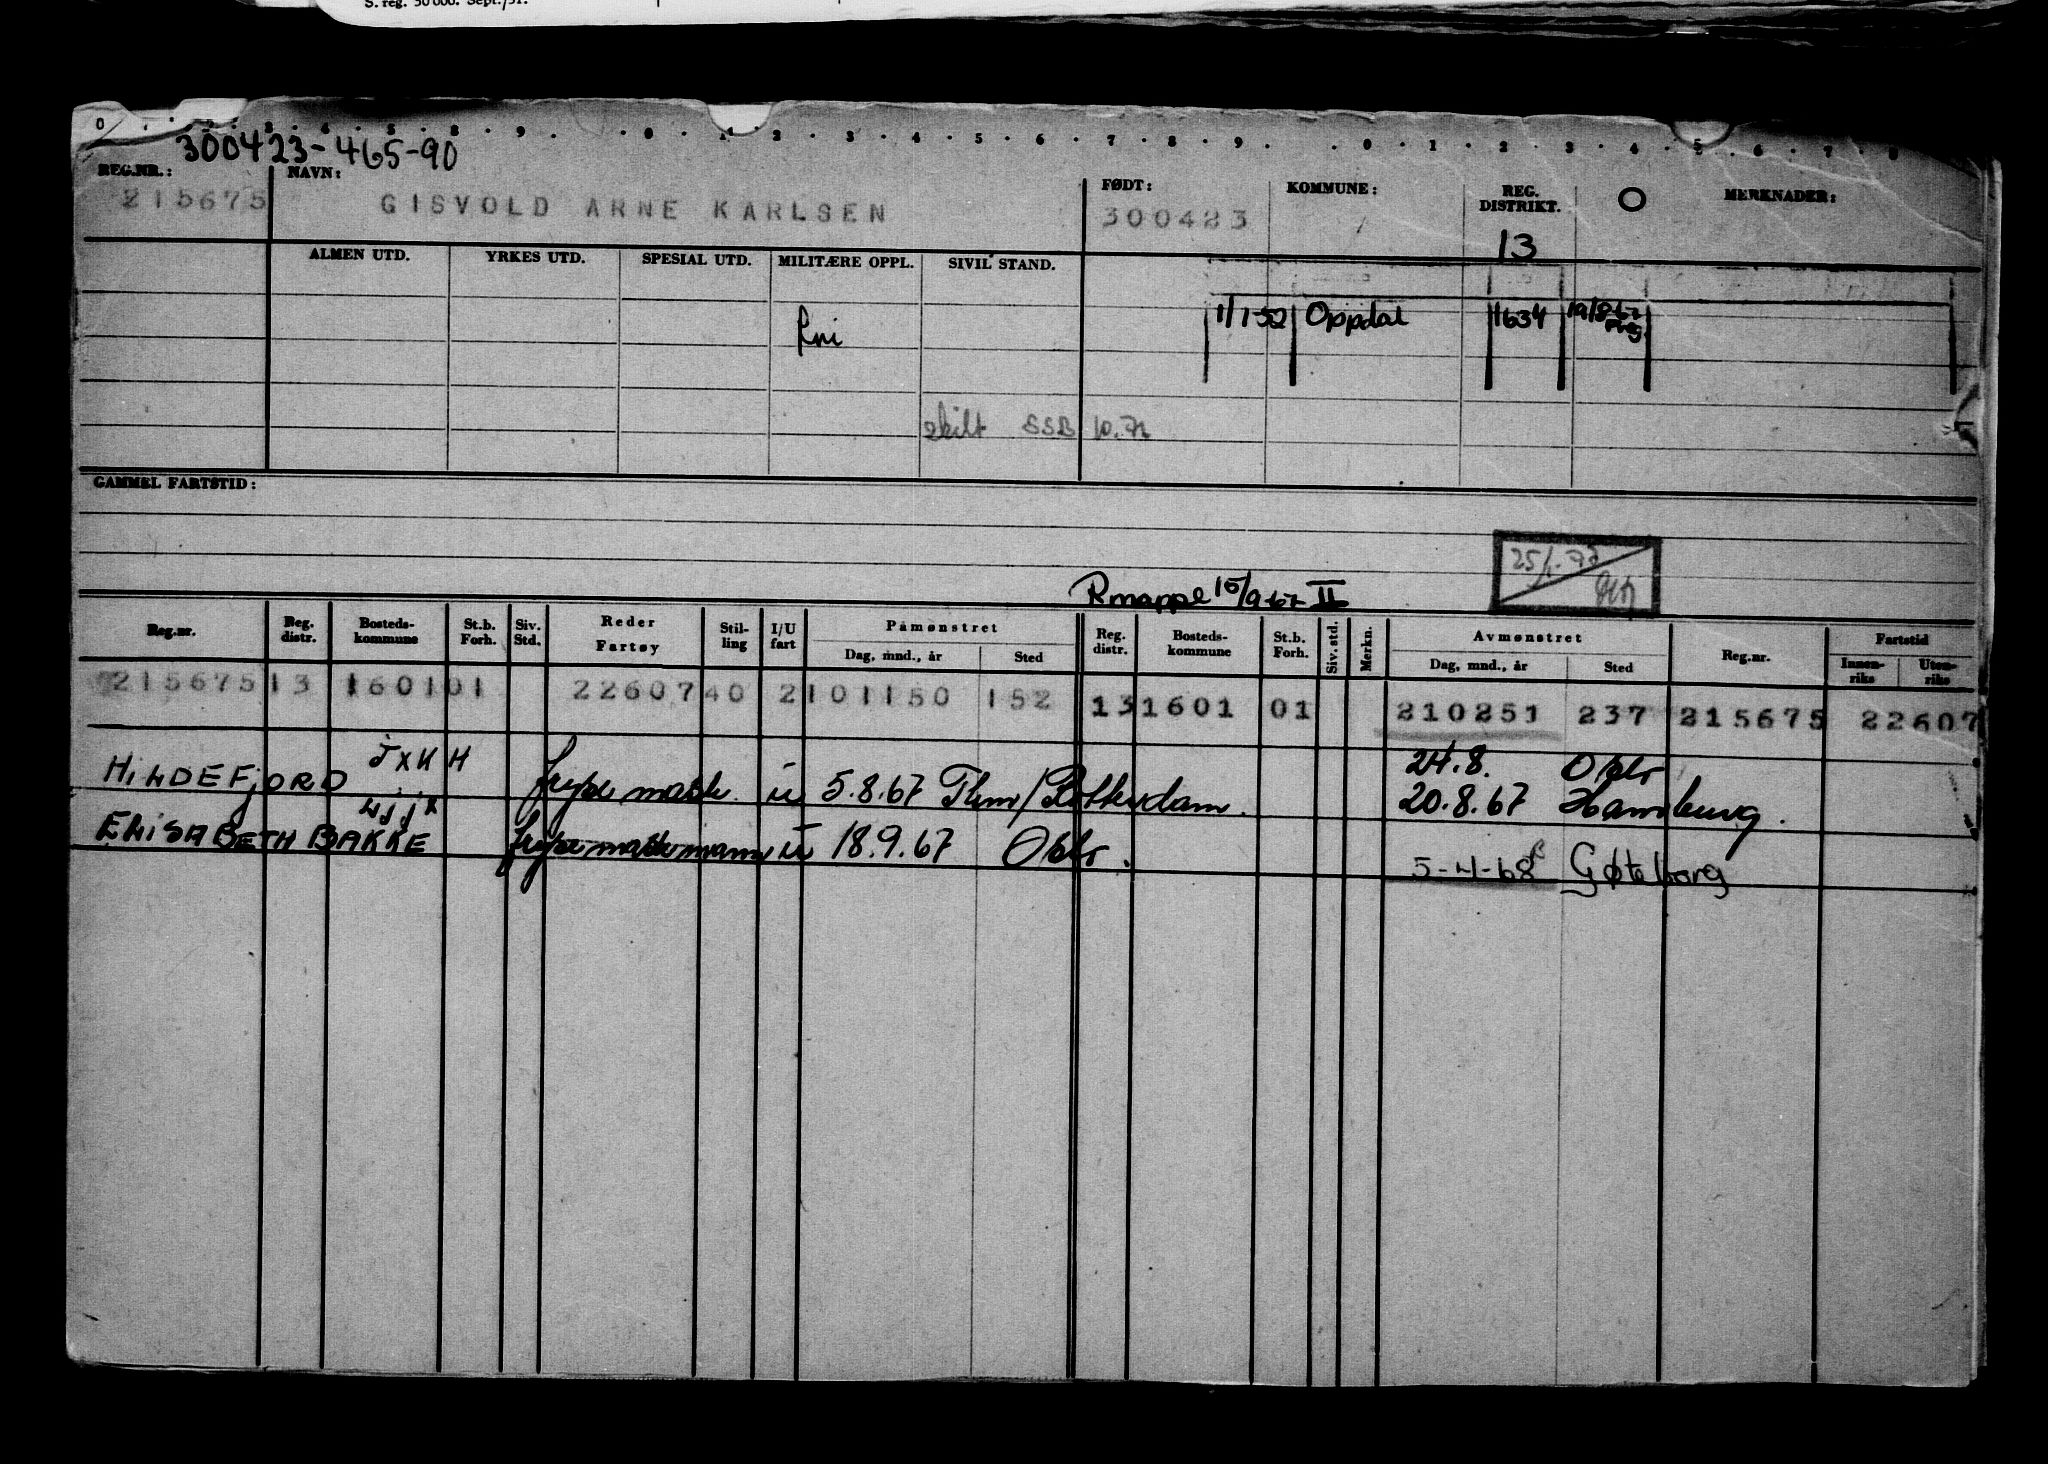 S. reg. 50 000. Sept./51.
0 . . 2 . 3 . 4 . 5 . 8 . 9 . . 0 . 1 . 2 . 3 . 4 . 5 . 6 . 7 . 8 . 9 . . 0 . 1 . 2 . 3 . 4 . 5 . 6 . 7 . 8
300423-465-90
REG.NR.: NAVN: FØDT: KOMMUNE: REG. DISTRIKT. O MERKNADER:
215675 GISVOLD ARNE KARLSEN 300423 13
ALMEN UTD. YRKES UTD. SPESIAL UTD. MILITÆRE OPPL. SIVIL STAND.
1/1-52 Oppdal 1634
skilt SSB 10.72
GAMMEL FARTSTID:
Rmappe 15/9-67 II
Reg.nr. Reg. distr. Bosteds-kommune St.b. Forh. Siv. Std. Reder Fartøy Stil-ling I/U fart Påmønstret Reg. distr. Bosteds-kommune St.b. Forh. Siv. std. Merkn. Avmønstret Reg.nr. Fartstid
Dag, mnd., år Sted Dag, mnd., år Sted Innen-riks Uten-riks
215675 13 1601 01 22607 40 2 101150 152 13 1601 01 210251 237 215675 22607
JXKH 24.8. Oslo
HILDEFJORD mask. u 5.8.67 Thm/Rotterdam. 20.8.67 Hamburg.
LJJX
ELISABETH BAKKE maskmann u 18.9.67 Oslo. 5-4-68 Gøteborg